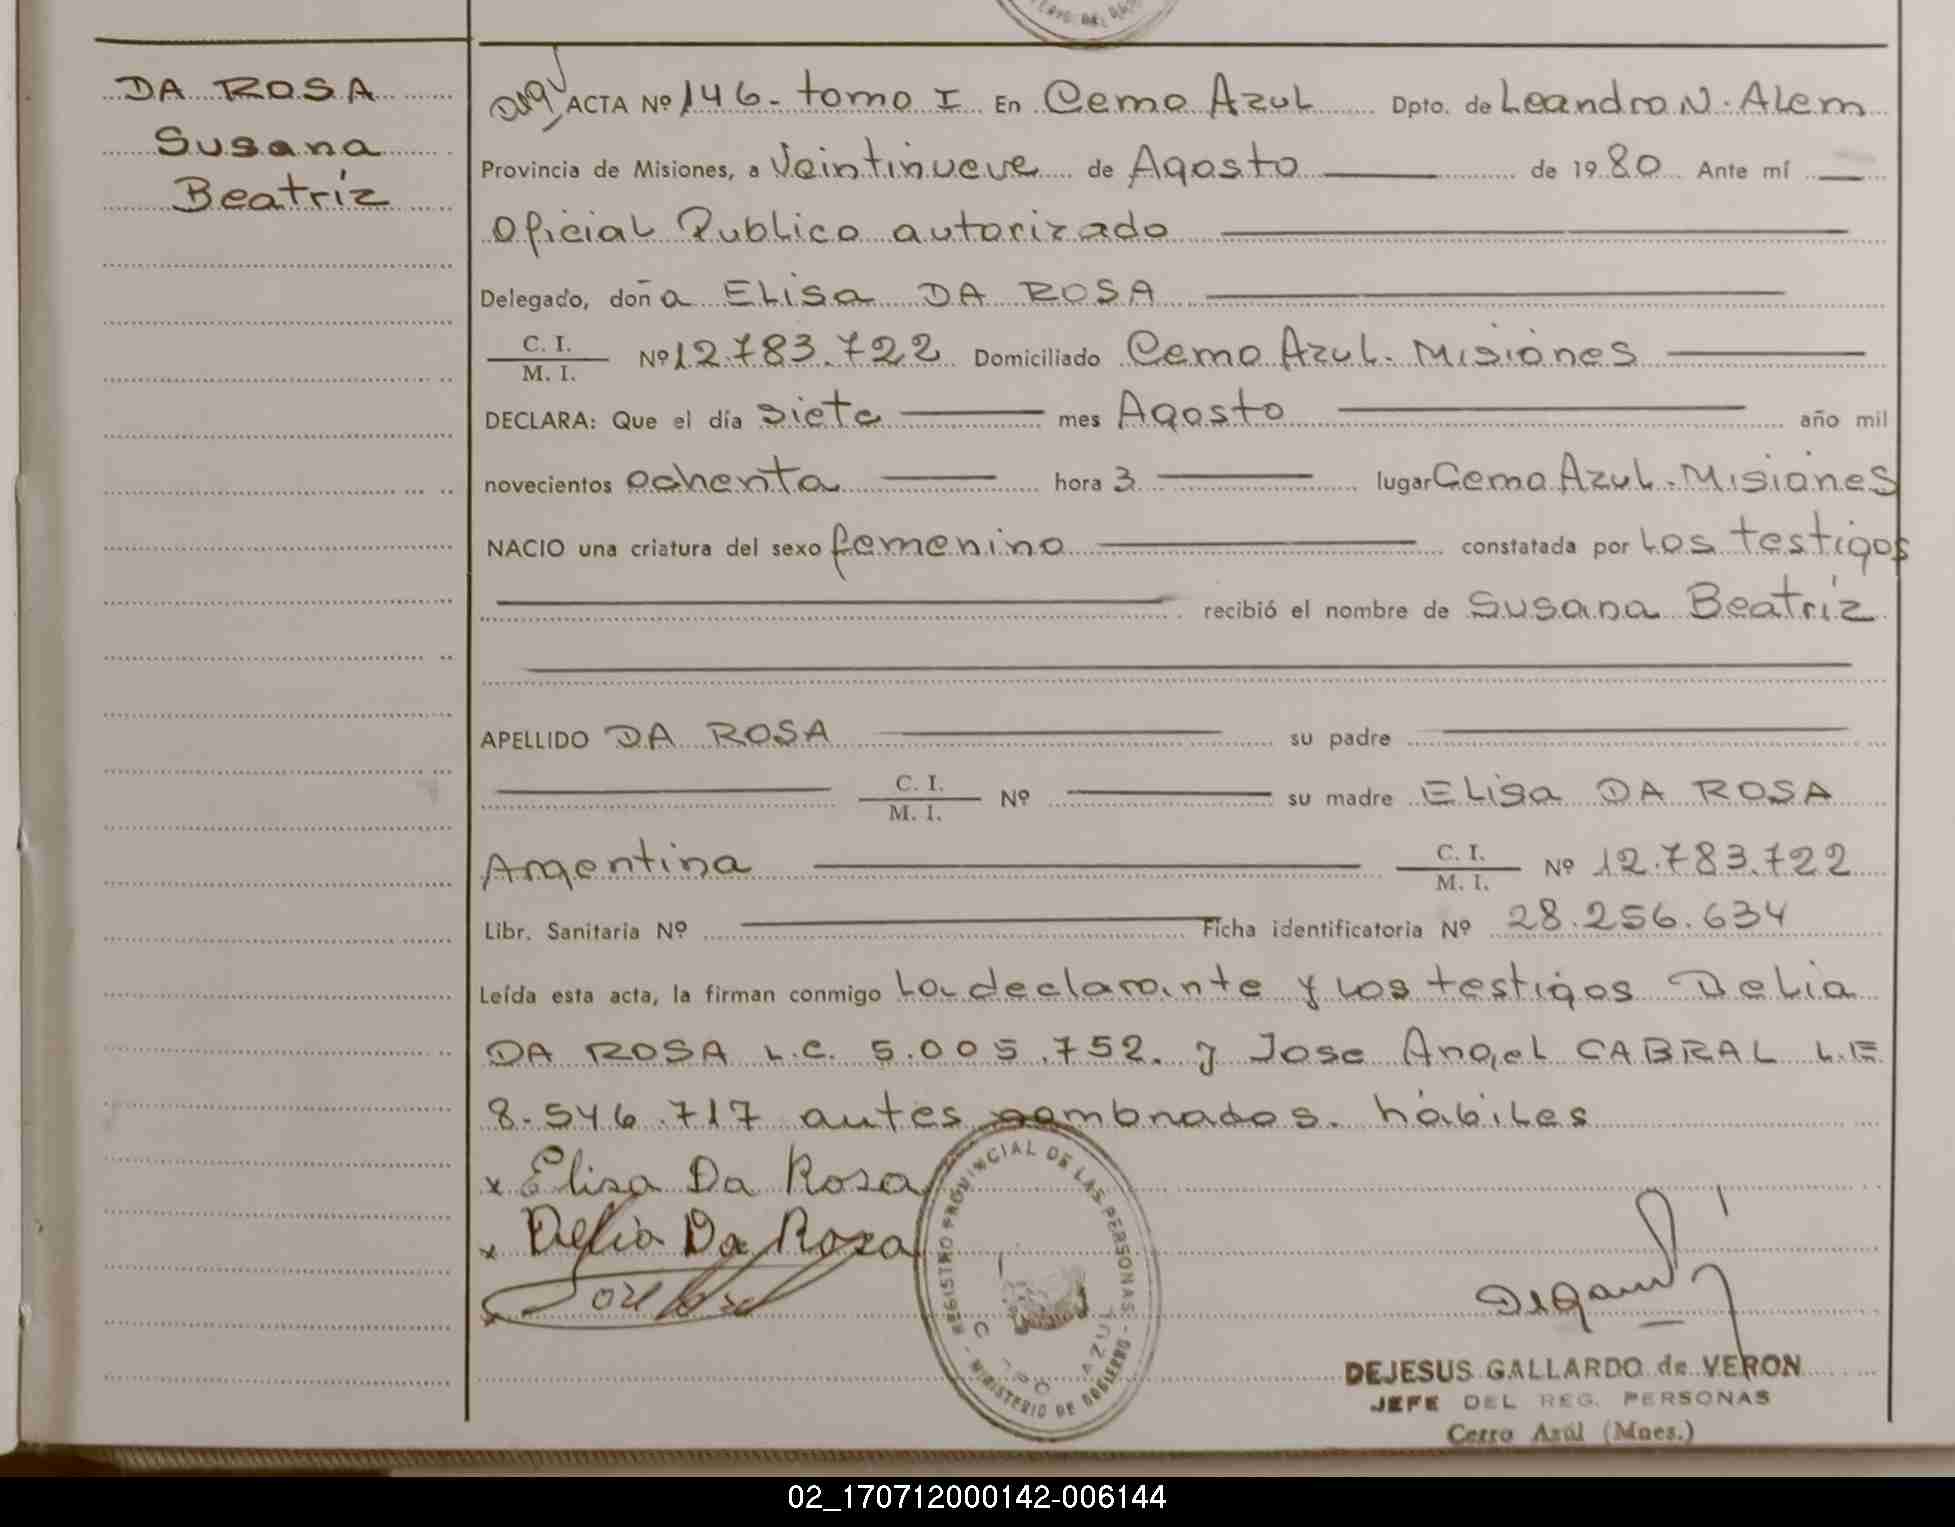 DA ROSA
Susana
Beatríz
ACTA Nº 146- tomo I En Cerro Azul Dpto. de Leandro N. Alem
Provincia de Misiones, a Veintinueve de Agosto de 1980 Ante mí
Oficial Publico autorizado
Delegado, doña Elisa DA ROSA
C. I.
M. I. Nº 12.783.722 Domiciliado Cerro Azul. Misiones
DECLARA: Que el día siete mes Agosto año mil
novecientos ochenta hora 3 lugar Cerro Azul. Misiones
NACIO una criatura del sexo femenino constatada por Los testigos
recibió el nombre de Susana Beatríz
APELLIDO DA ROSA su padre
C. I.
M. I. Nº su madre Elisa DA ROSA
Argentina C. I.
M. I. Nº 12.783.722
Libr. Sanitaria Nº Ficha identificatoria Nº 28.256.634
Leída esta acta, la firman conmigo La declarante y Los testigos Delia
DA ROSA L.C. 5.005.752. y Jose Angel CABRAL L.E
8.546.717 antes nombrados. hábiles
x Elisa Da Rosa
x Delia Da Roza
REGISTRO PROVINCIAL DE LAS PERSONAS - MINISTERIO DE GOBIERNO -
AZUL
DEJESUS GALLARDO de VERON
JEFE DEL REG. PERSONAS
Cerro Azúl (Mnes.)
02_170712000142-006144